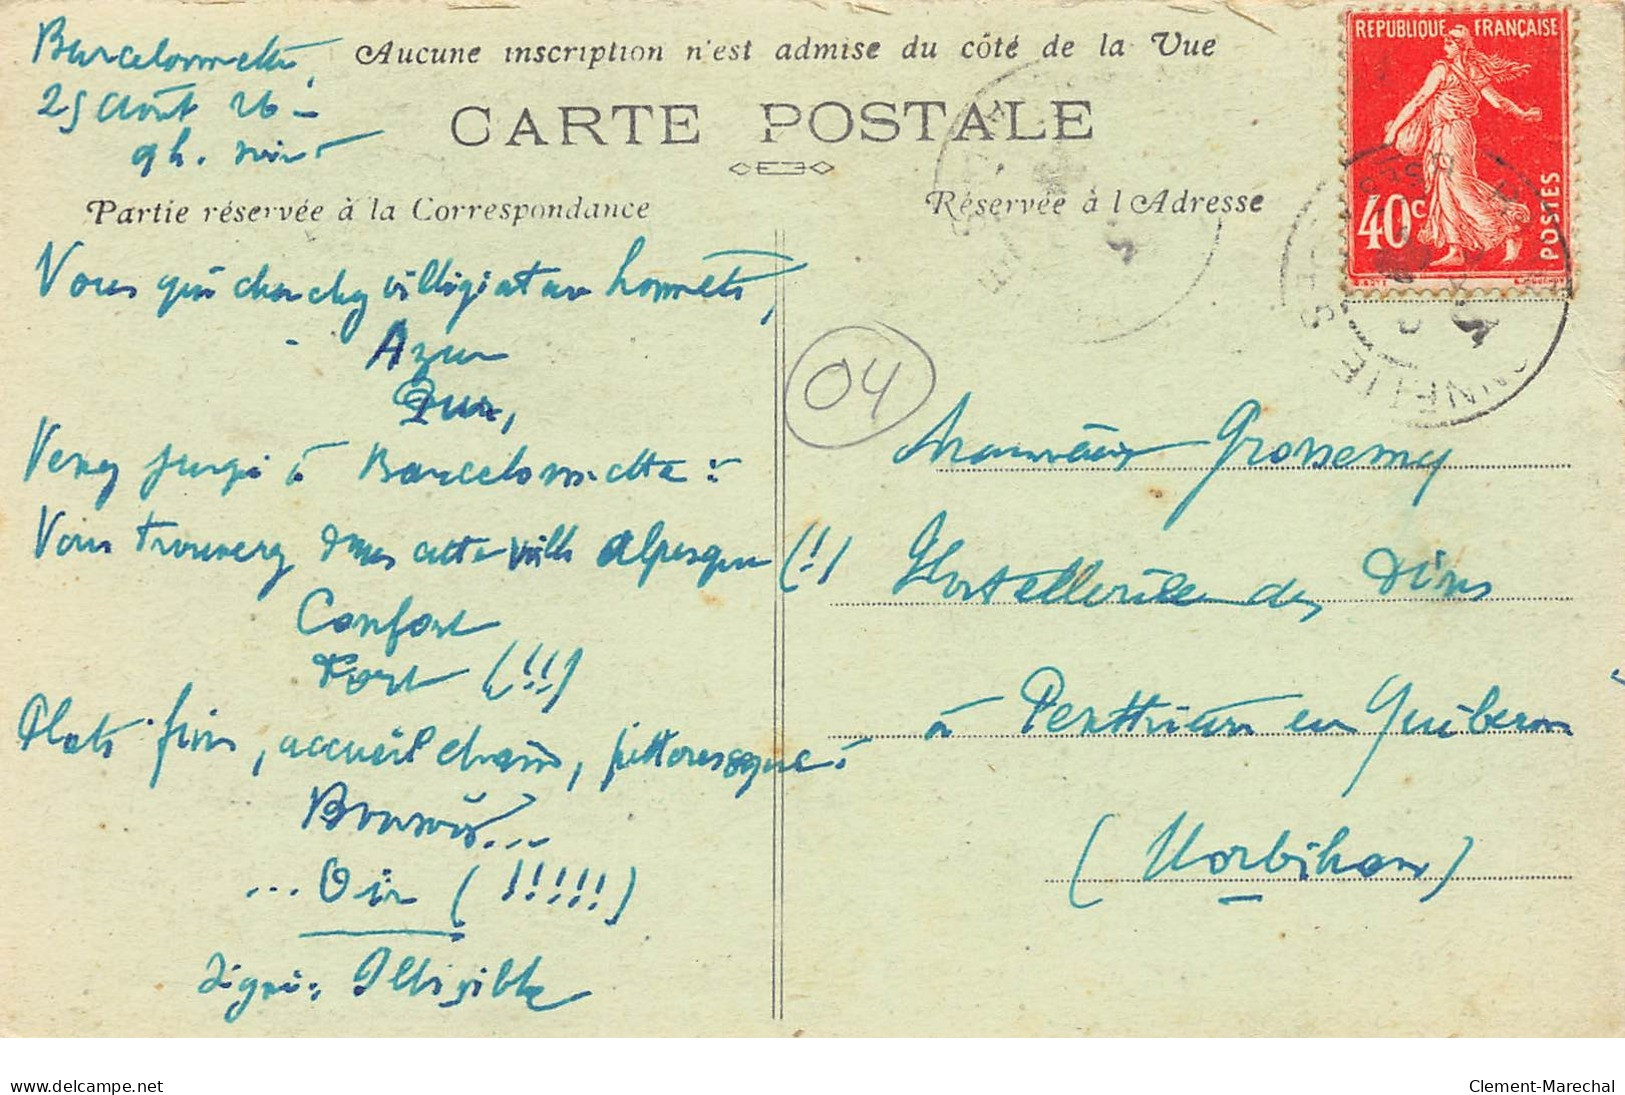 Barcelonnette,
25 Août 26 -
9h. soir -
Aucune inscription n'est admise du côté de la Vue
CARTE POSTALE
Partie réservée à la Correspondance
Réservée à l'Adresse
REPUBLIQUE FRANÇAISE
40c
POSTES
Vous qui cherchez villégiature honnête,
Azur
Pur,
Venez jusqu'à Barcelonnette :
Vous trouverez dans cette ville alpesque (!)
Confort
Fort (!!!)
Plats fins, accueil charm, pittoresque :
...
... Oir (!!!!!)
signé : Illisible
04
Monsieur Grossemy
Hostellerie des Pins
à Penthièvre en Quiberon
(Morbihan)
delcampe.net
Clement-Marechal